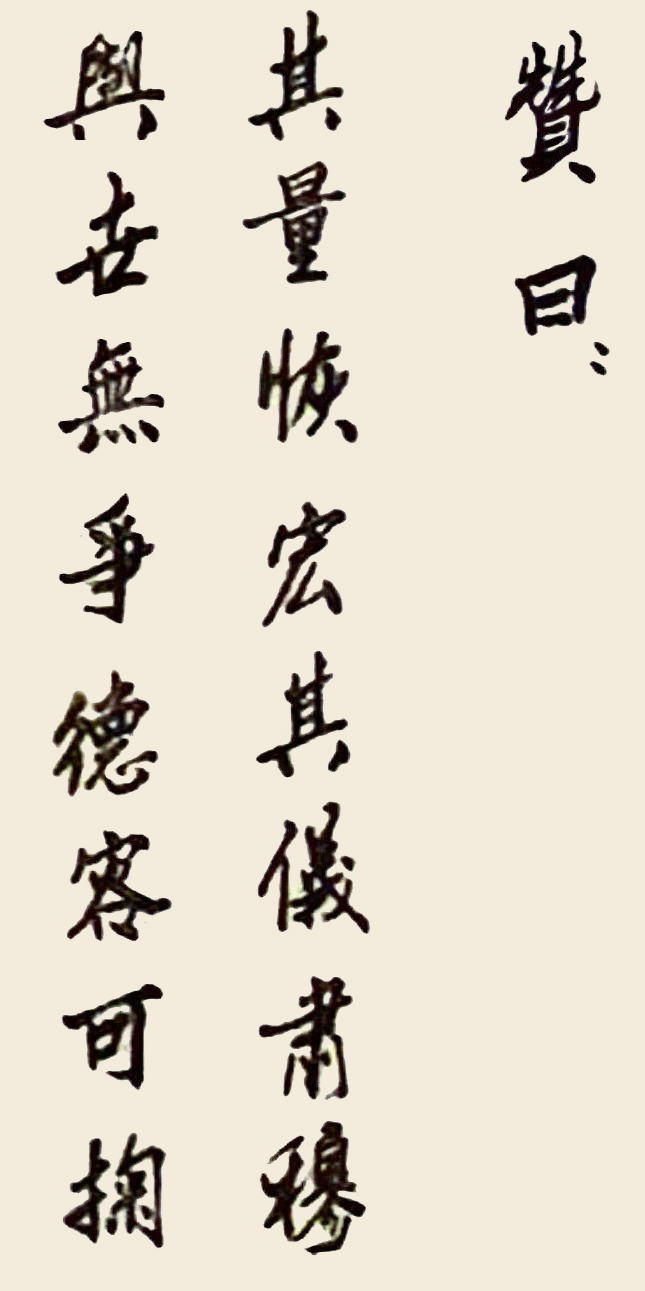 贊曰：
其量恢宏其儀肅穆
與世無爭德容可掬